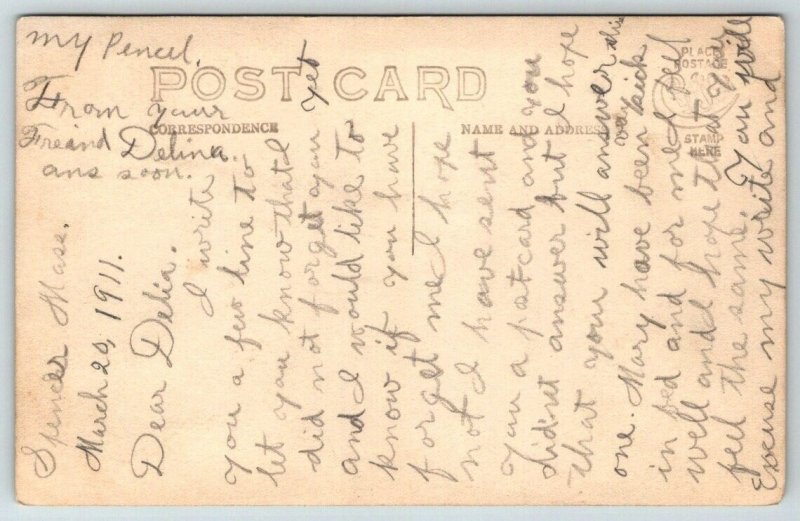 POST CARD
CORRESPONDENCE
NAME AND ADDRESS
PLACE
POSTAGE
STAMP
HERE
Spencer Mass.
March 20, 1911.
Dear Delia.
I write
you a few line to
let you know that I
did not forget you yet
and I would like to
know if you have
forget me I hope
not I have sent
you a postcard and you
didnt answer but I hope
that your will answer this
one. Mary have been sick
in bed and for me I feel
well and I hope that you
feel the same. You will
Excuse my write and
my Pencel.
From your
Freind Delina.
ans soon.